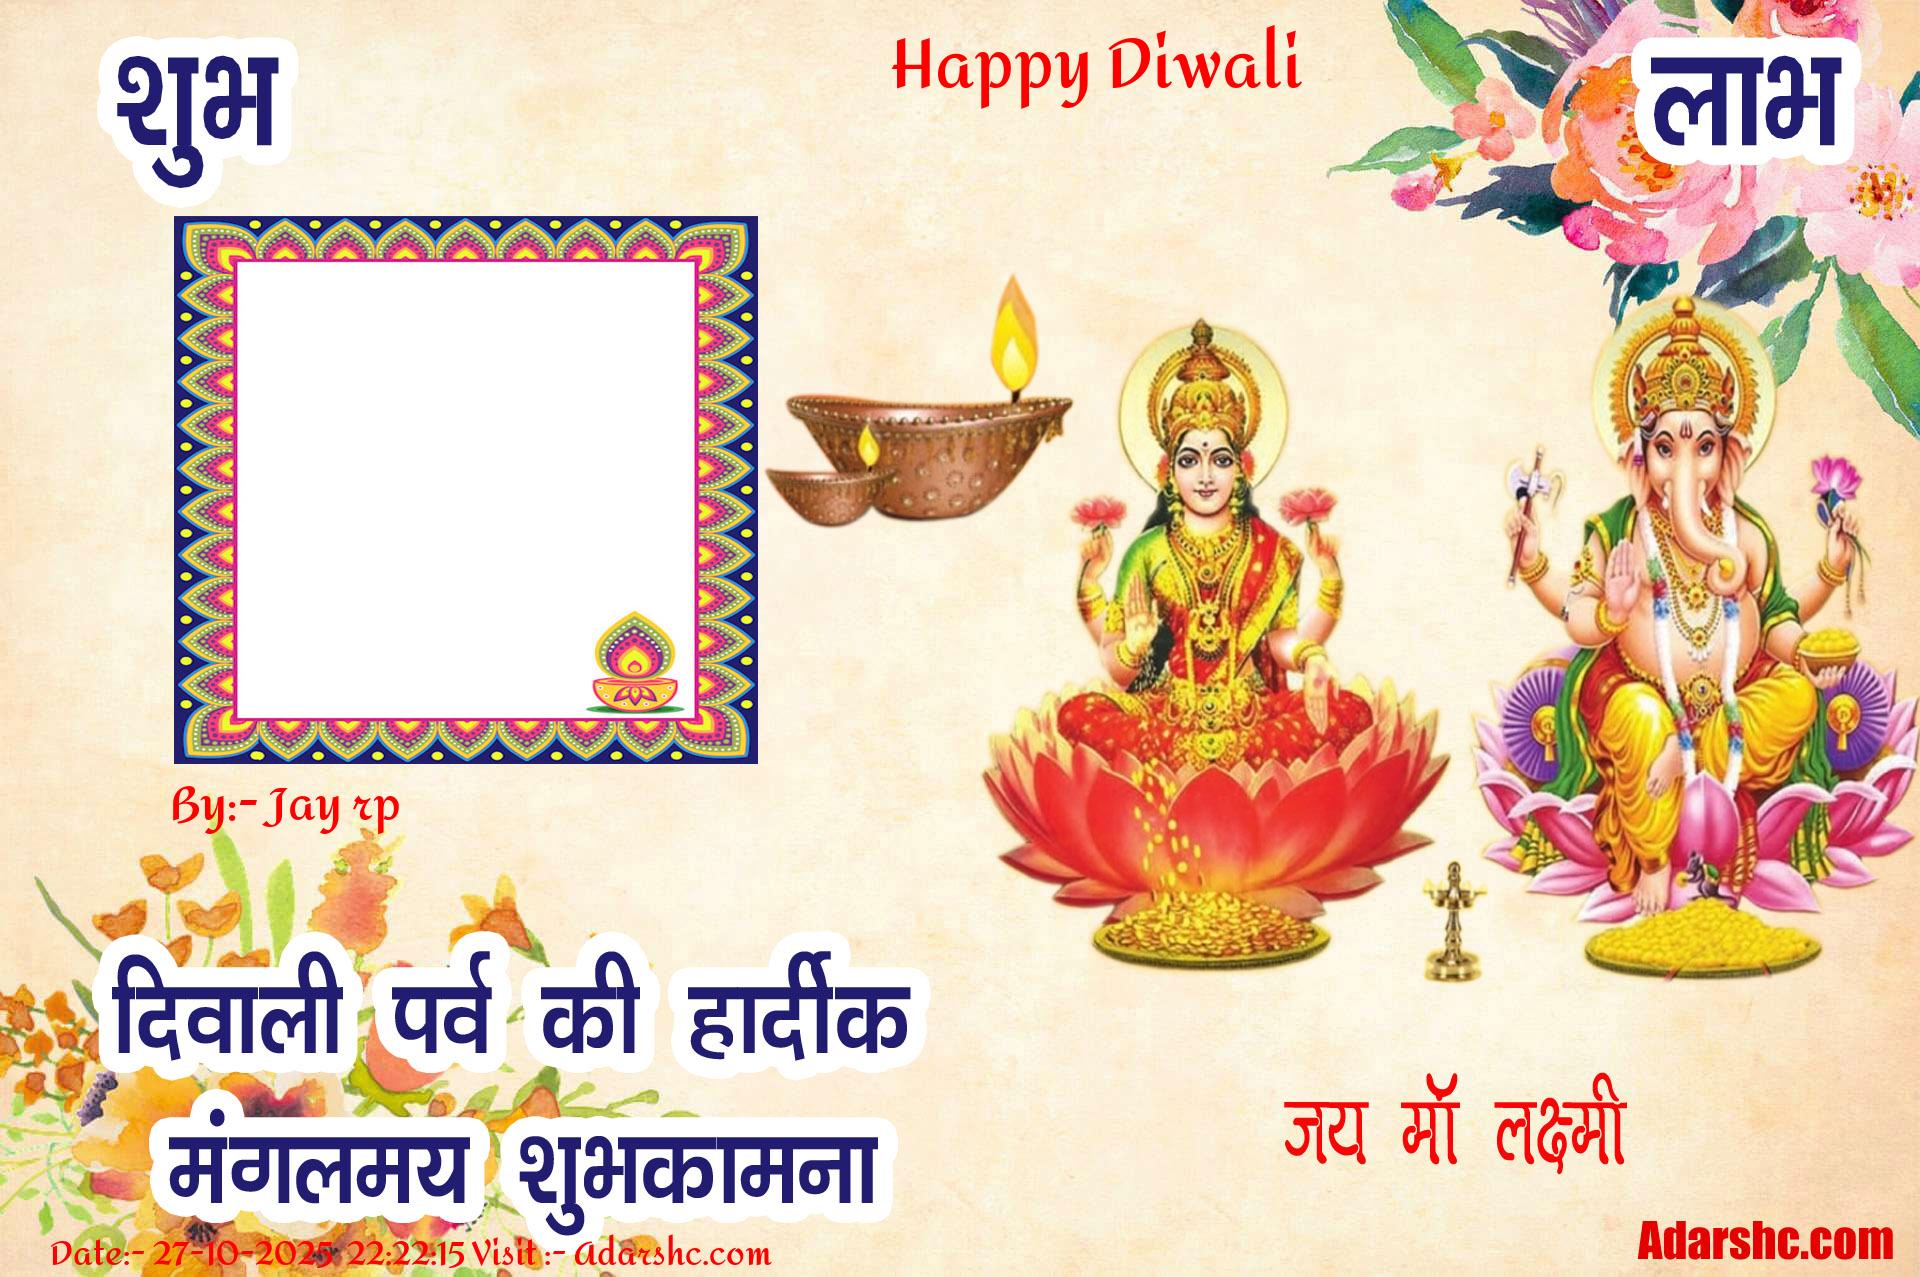 शुभ
Happy Diwali
लाभ
By:- Jay rp
दिवाली पर्व की हार्दीक
मंगलमय शुभकामना
जय मॉ लक्ष्मी
Date:- 27-10-2025 22:22:15 Visit :- Adarshc.com
Adarshc.com